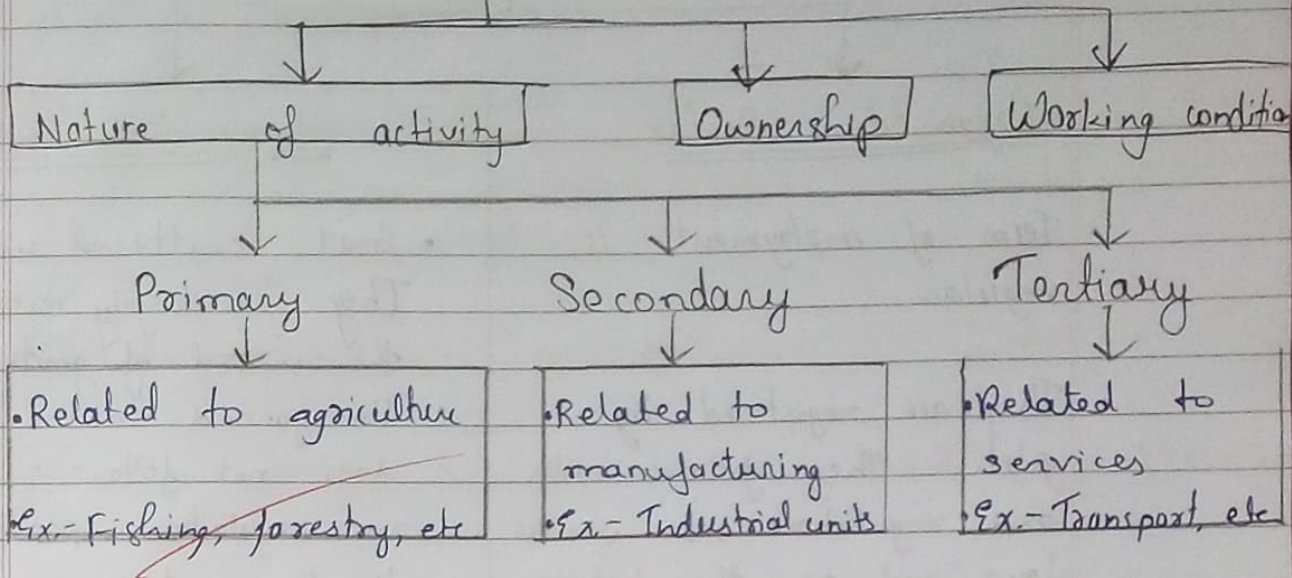 Nature of activity
Ownership
Working conditio
Primary
Secondary
Tertiary
•Related to agriculture
•Ex.- Fishing, forestry, etc
•Related to
manufacturing
•Ex- Industrial units
•Related to
services
•Ex.- Transport, etc